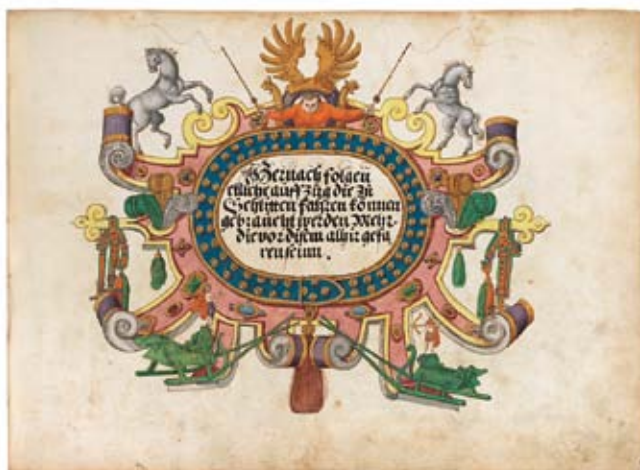 Hernach folgen
etliche auffzüg die zu
Schlitten fahren können
gebraucht werden Mehr-
die vor disem alhir gefa
ren seinn .